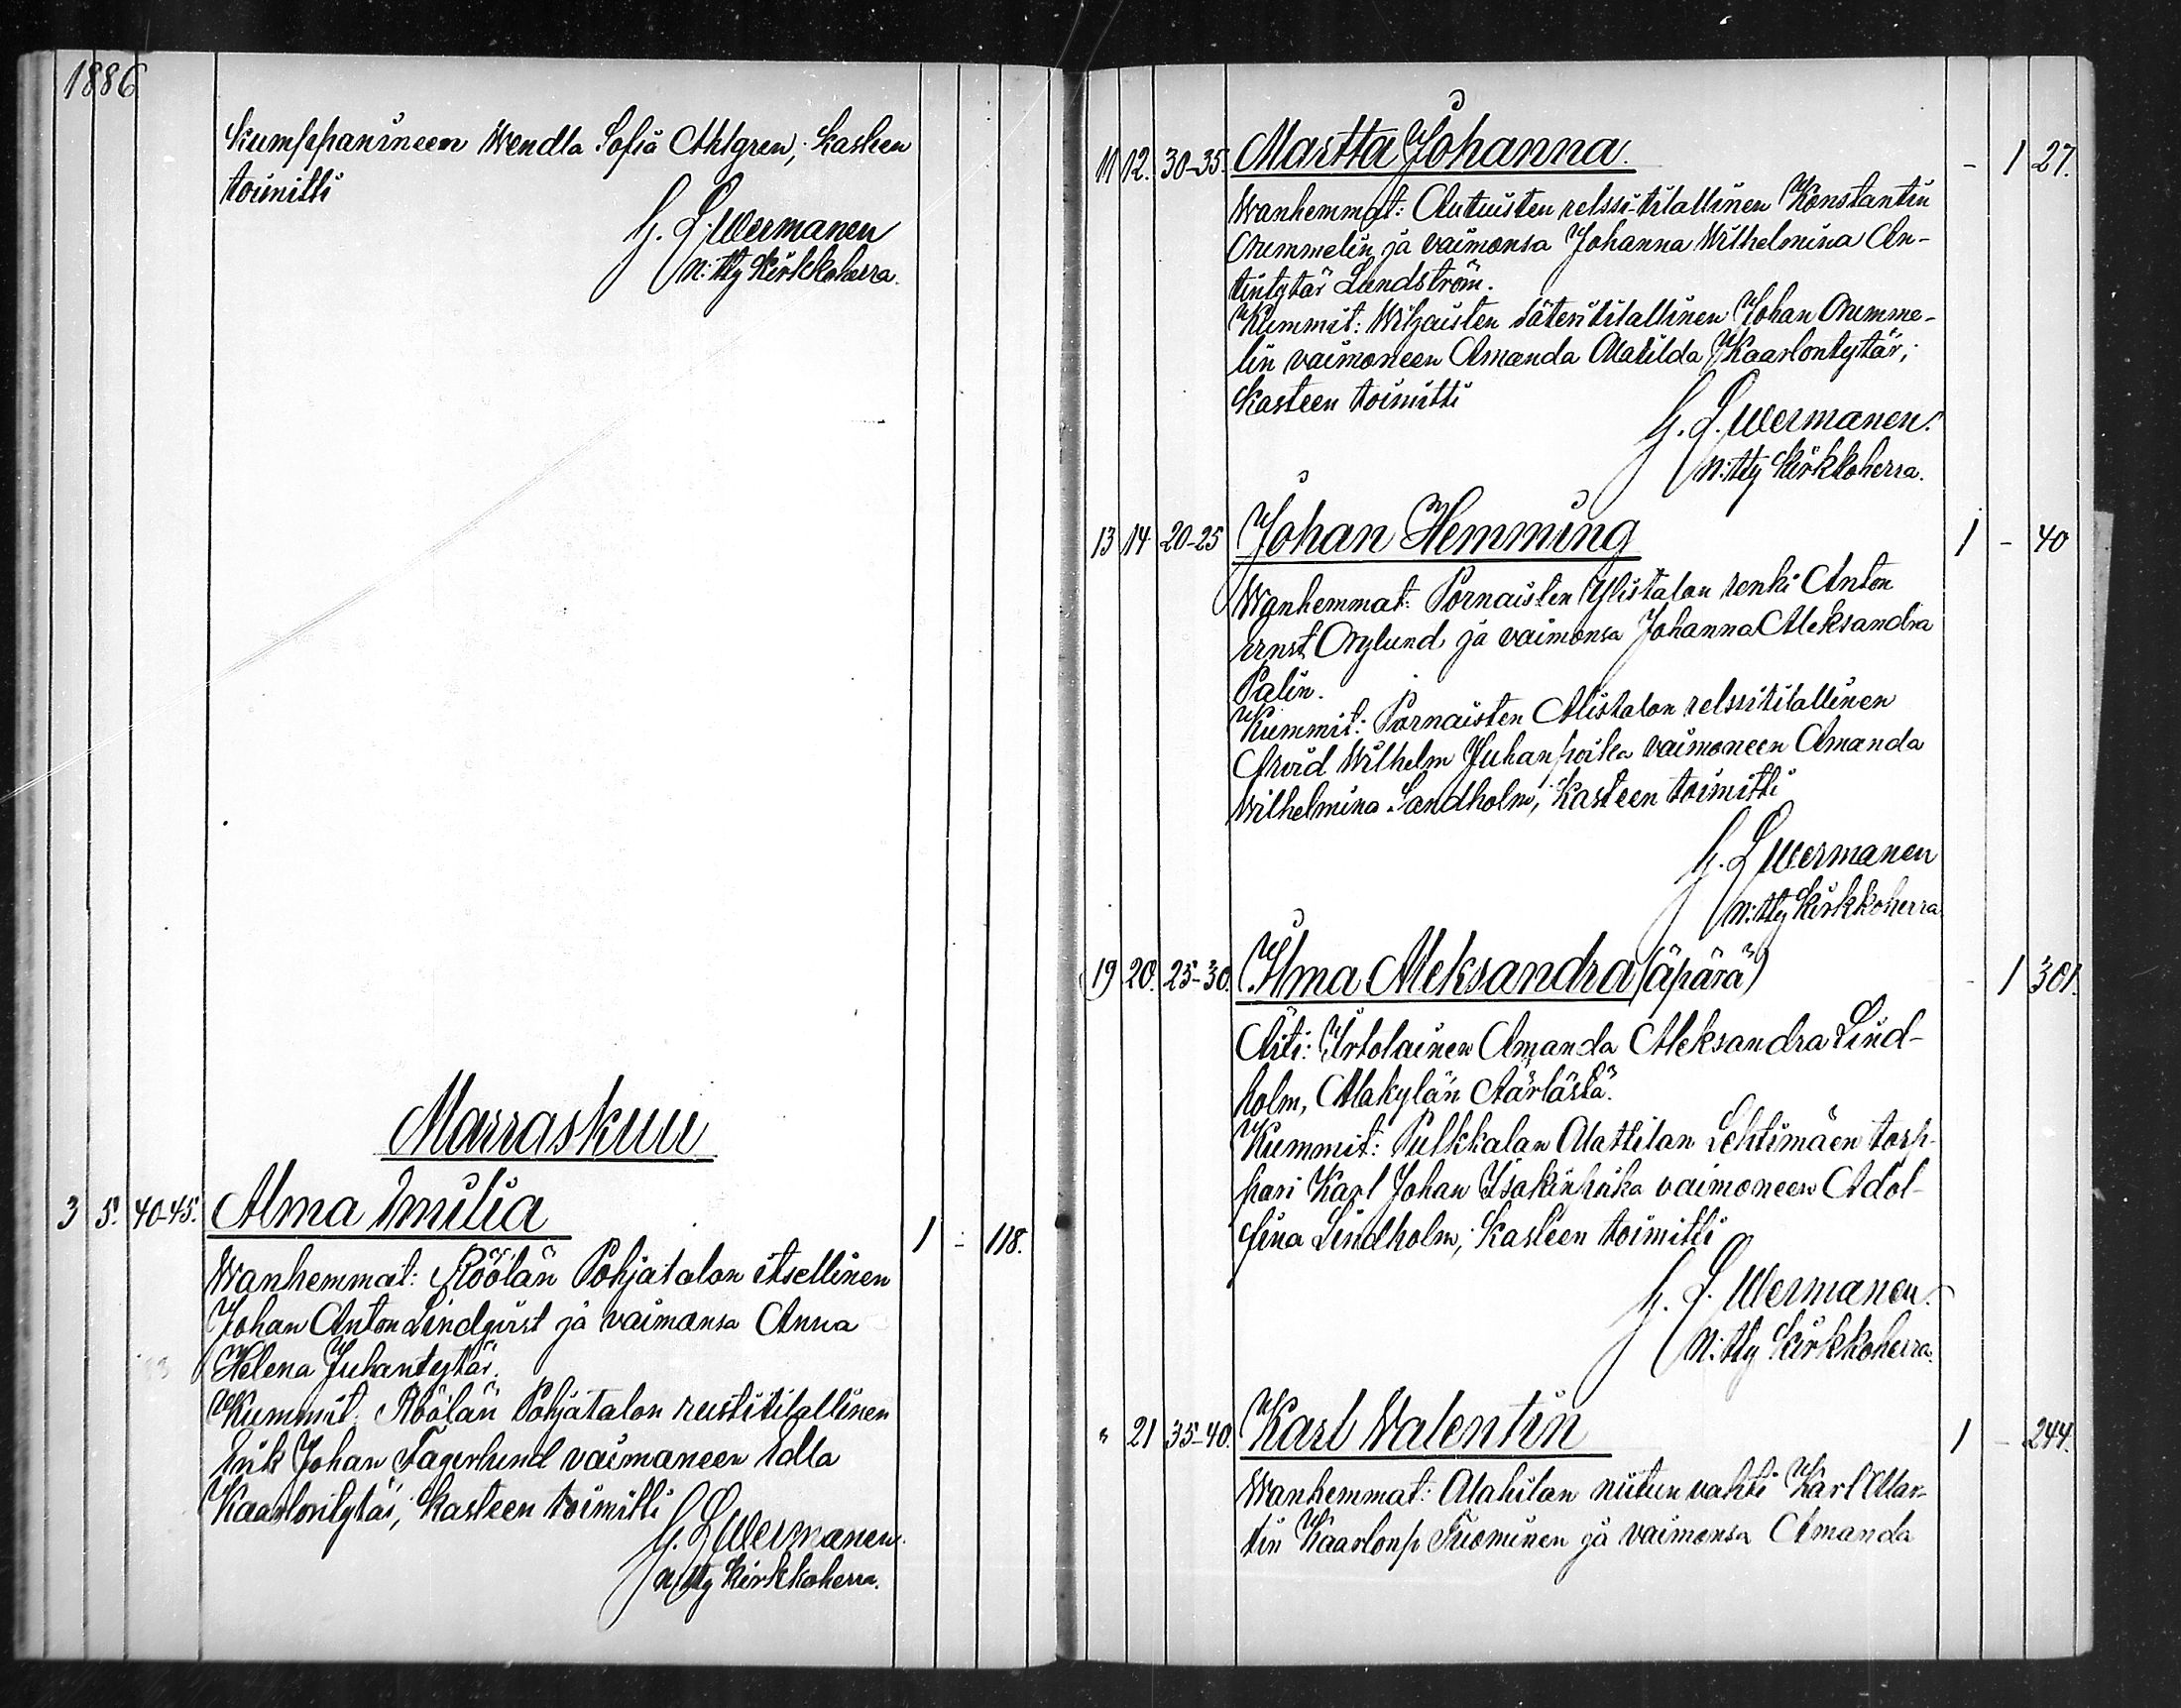 1886
kumppanineen Wendla Sofia Ahlgren; kasteen
toimitti
G. L. Wermanen
n:tty kirkkoherra.
Marraskuu
3 5. 40-45. Alma Emilia 1 - 118.
Wanhemmat: Röölän Pohjatalon itsellinen
Johan Anton Lindqvist ja vaimonsa Anna
Helena Juhantytär.
Kummit: Röölän Pohjatalon rustitilallinen
Erik Johan Fagerlund vaimoneen Edla
Kaarlontytär; kasteen toimitti
G. L. Wermanen.
n:tty kirkkoherra.
11 12. 30-35. Martta Johanna. - 1 27.
Wanhemmat: relssi-tilallinen Konstantin
Nummelin ja vaimonsa Johanna Wilhelmina An-
tintytär Lundström.
Kummit: säteritilallinen Johan Numme-
lin vaimoneen Amanda Matilda Kaarlontytär;
kasteen toimitti
G. L. Wermanen.
n:tty kirkkoherra.
13 14 20-25 Johan Hemming 1 - 40
Wanhemmat: Pornaisten Ylistalon renki Anton
Ernst Nylund ja vaimonsa Johanna Aleksandra
Palin.
Kummit: Pornaisten Alistalon relssitilallinen
Arvid Wilhelm Juhanpoika vaimoneen Amanda
Wilhelmina Sandholm; kasteen toimitti
G. L. Wermanen
n:tty kirkkoherra
19 20. 25-30. Ilma Aleksandra (äpärä) - 1 301.
Äiti: Irtolainen Amanda Aleksandra Lind-
holm, Makylän Äärlästä.
Kummit: Pulkkalan Mattilan Lehtimäen torp-
pari Karl Johan Isakinpoika vaimoneen Adol-
fina Lindholm; kasteen toimitti
G. L. Wermanen.
n:tty kirkkoherra.
" 21 35-40. Karl Valentin 1 - 244.
Wanhemmat: niitun vahti Karl Mar-
tin Kaarlonp Tuominen ja vaimonsa Amanda